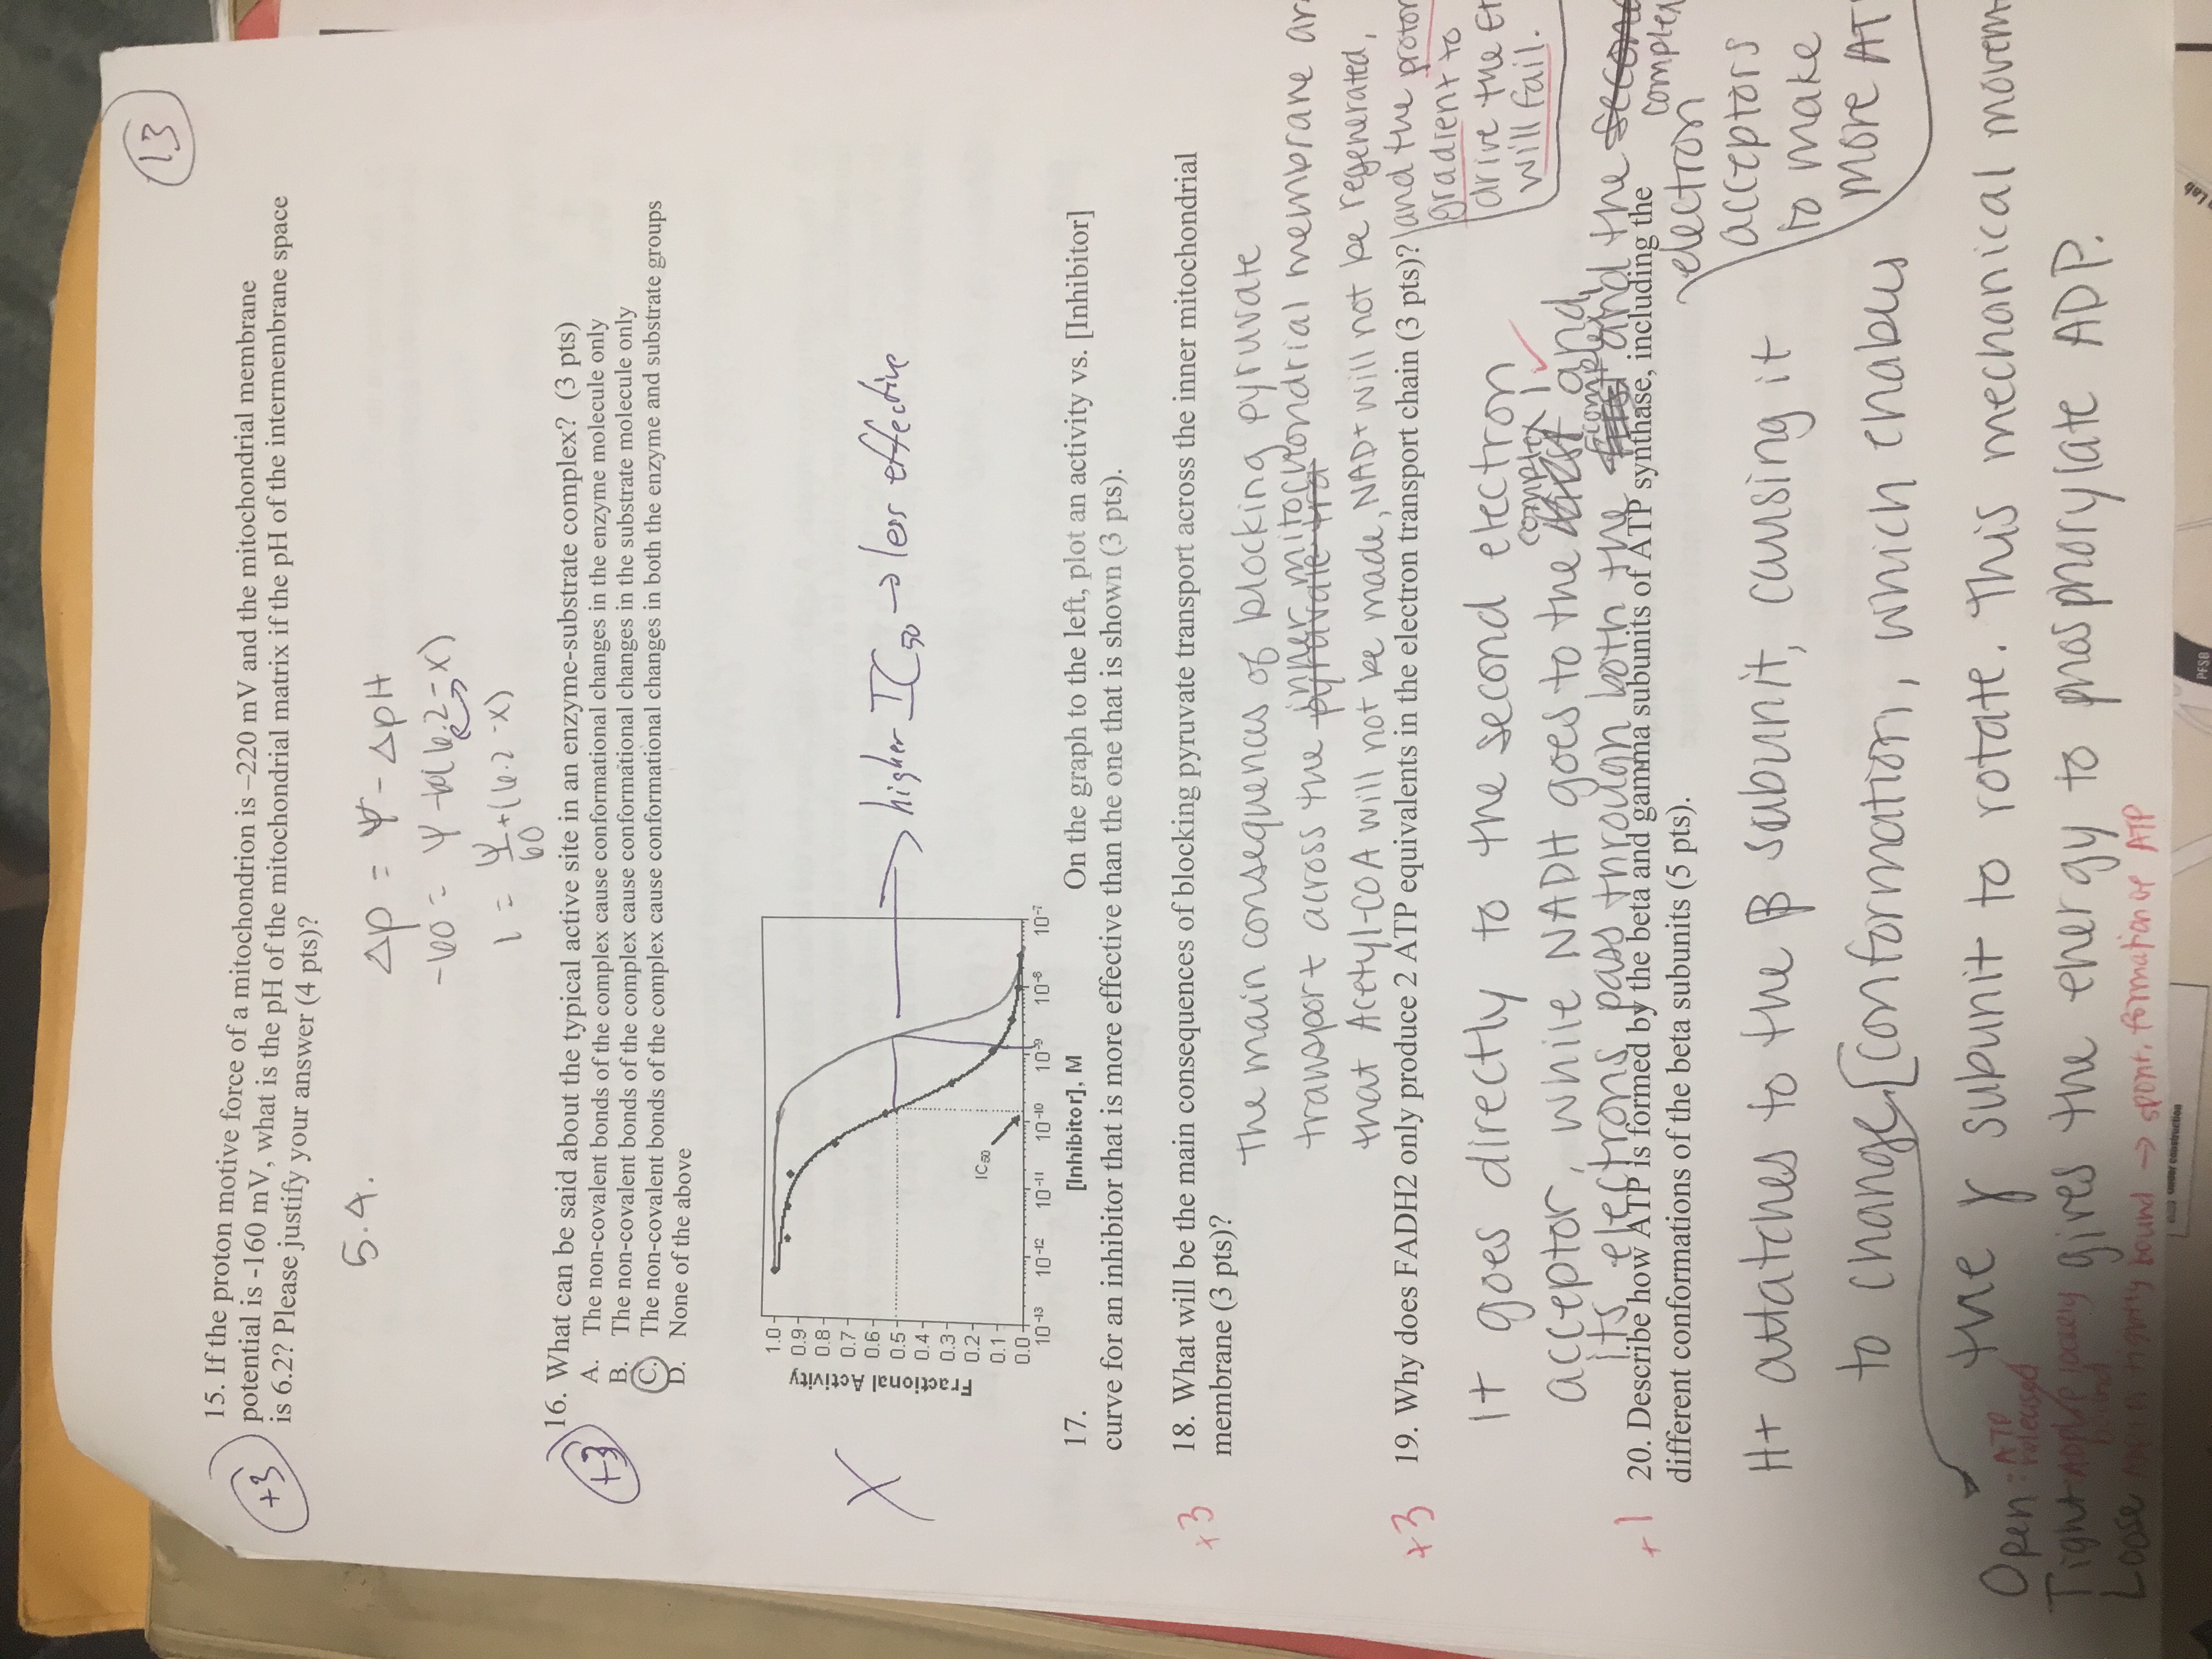 13
+3
15. If the proton motive force of a mitochondrion is –220 mV and the mitochondrial membrane
potential is -160 mV, what is the pH of the mitochondrial matrix if the pH of the intermembrane space
is 6.2? Please justify your answer (4 pts)?
5.4.
Δp = Ψ - ΔpH
-60 = Ψ -60(6.2-x)
1 = Ψ/60 +(6.2 -x)
+3
16. What can be said about the typical active site in an enzyme-substrate complex? (3 pts)
A. The non-covalent bonds of the complex cause conformational changes in the enzyme molecule only
B. The non-covalent bonds of the complex cause conformational changes in the substrate molecule only
C. The non-covalent bonds of the complex cause conformational changes in both the enzyme and substrate groups
D. None of the above
X
Fractional Activity
1.0
0.9
0.8
0.7
0.6
0.5
0.4
0.3
0.2
0.1
0.0
IC50
10-13 10-12 10-11 10-10 10-9 10-8 10-7
[Inhibitor], M
higher IC50 → less effective
17. On the graph to the left, plot an activity vs. [Inhibitor]
curve for an inhibitor that is more effective than the one that is shown (3 pts).
+3
18. What will be the main consequences of blocking pyruvate transport across the inner mitochondrial
membrane (3 pts)?
The main consequences of blocking pyruvate
transport across the pyruvate tra inner mitochondrial membrane ar
that Acetyl-COA will not be made, NAD+ will not be regenerated,
and the proton
gradient to
drive the Et
will fail.
+3
19. Why does FADH2 only produce 2 ATP equivalents in the electron transport chain (3 pts)?
It goes directly to the second electron
acceptor, while NADH goes to the complex 1 and
its electrons pass through both the first complex 1 and the second
complex
electron
acceptors
to make
more AT
+1
20. Describe how ATP is formed by the beta and gamma subunits of ATP synthase, including the
different conformations of the beta subunits (5 pts).
H+ attatches to the β subunit, causing it
to change conformation, which enables
the γ subunit to rotate. This mechanical movem
gives the energy to phosphorylate ADP.
Open : ATP released
Tight loosely bound
Loose tightly bound → spont. formation of ATP
under construction
PFSB
Lab